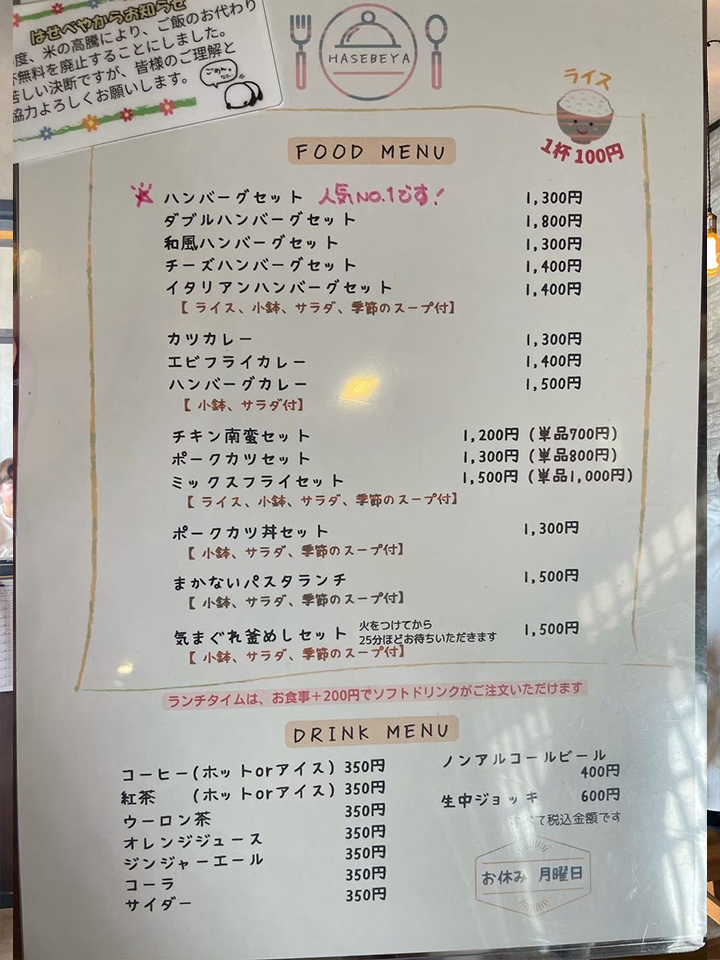 はせべやからお知らせ
度、米の高騰により、ご飯のお代わり
無料を廃止することにしました。
苦しい決断ですが、皆様のご理解と
協力よろしくお願いします。
HASEBEYA
ライス
1杯100円
FOOD MENU
ハンバーグセット 人気NO.1です! 1,300円
ダブルハンバーグセット 1,800円
和風ハンバーグセット 1,300円
チーズハンバーグセット 1,400円
イタリアンハンバーグセット 1,400円
【 ライス、小鉢、サラダ、季節のスープ付】
カツカレー 1,300円
エビフライカレー 1,400円
ハンバーグカレー 1,500円
【 小鉢、サラダ付】
チキン南蛮セット 1,200円(単品700円)
ポークカツセット 1,300円(単品800円)
ミックスフライセット 1,500円(単品1,000円)
【 ライス、小鉢、サラダ、季節のスープ付】
ポークカツ丼セット 1,300円
【 小鉢、サラダ、季節のスープ付】
まかないパスタランチ 1,500円
【 小鉢、サラダ、季節のスープ付】
気まぐれ釜めしセット 火をつけてから 25分ほどお待ちいただきます 1,500円
【 小鉢、サラダ、季節のスープ付】
ランチタイムは、お食事+200円でソフトドリンクがご注文いただけます
DRINK MENU
コーヒー(ホットorアイス) 350円
紅茶 (ホットorアイス) 350円
ウーロン茶 350円
オレンジジュース 350円
ジンジャーエール 350円
コーラ 350円
サイダー 350円
ノンアルコールビール
400円
生中ジョッキ 600円
すべて税込金額です
お休み 月曜日